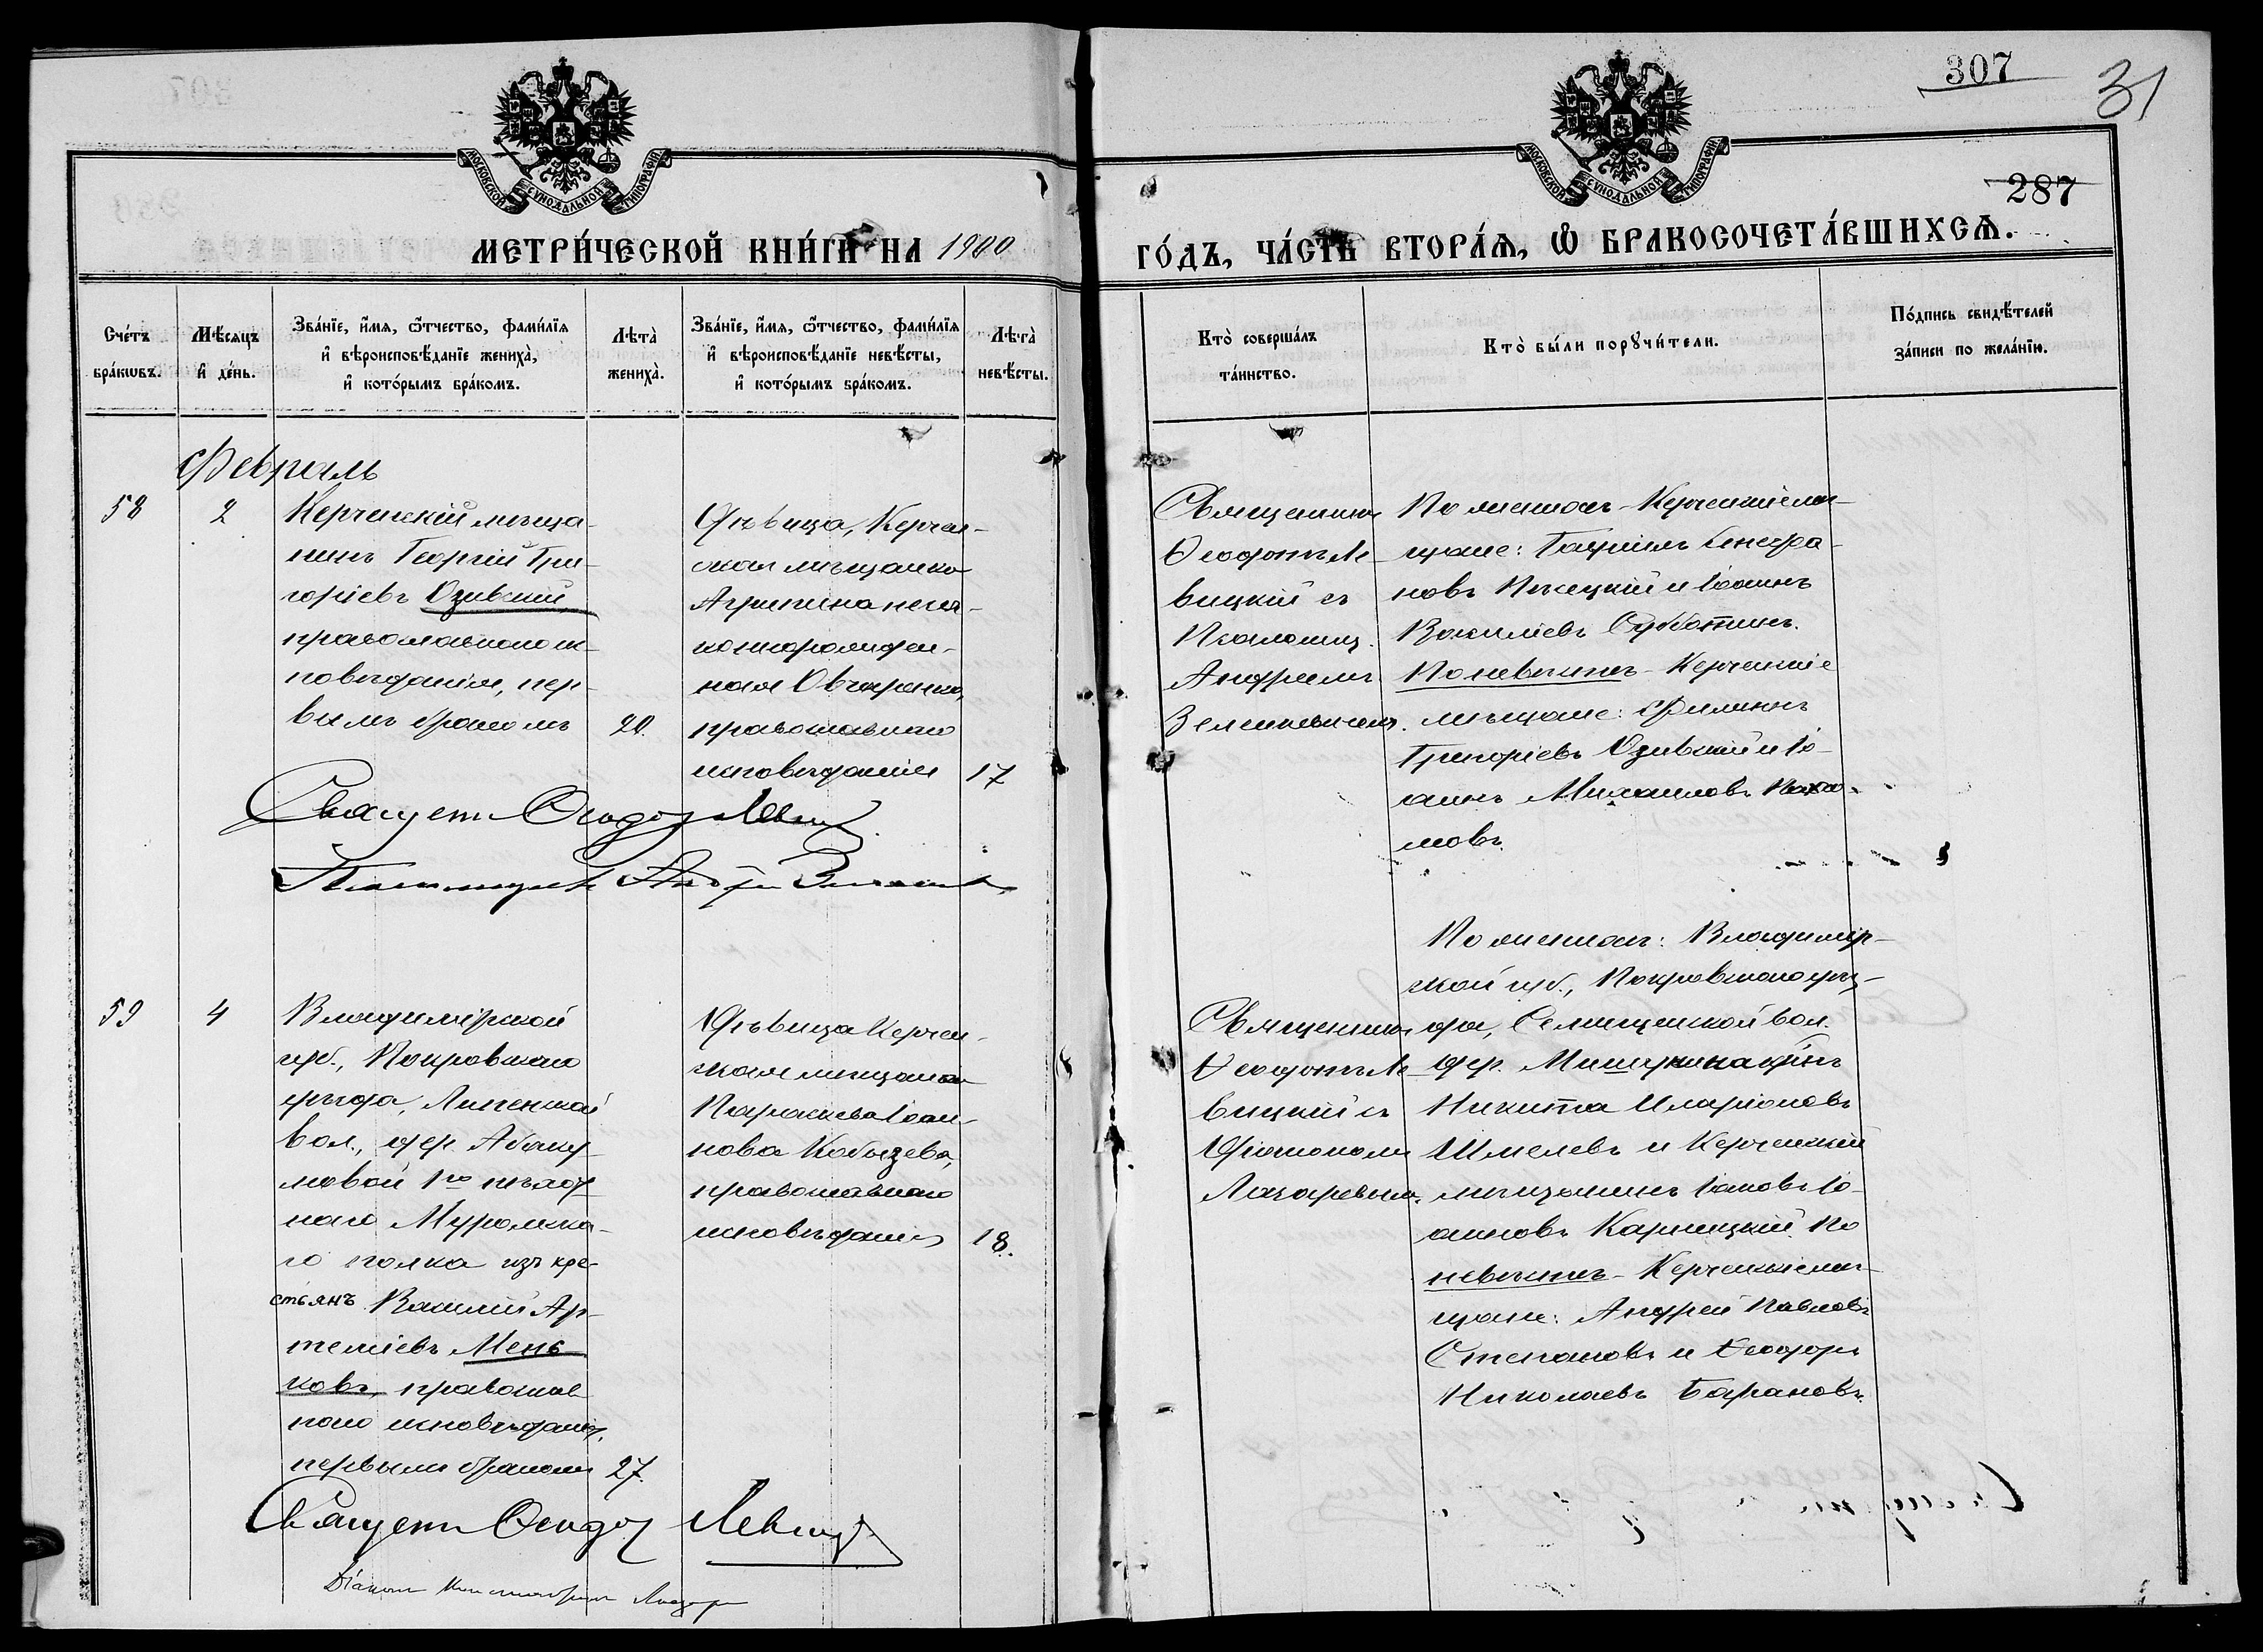 307
31
287
МОСКОВСКОЙ СѴНОДАЛЬНОЙ ТИПОГРАФІИ
МОСКОВСКОЙ СѴНОДАЛЬНОЙ ТИПОГРАФІИ
МЕТРИ́ЧЕСКОЙ КНИ́ГИ НА 1900
ГО́ДЪ, ЧА́СТЬ ВТОРА́Ѧ, Ѡ҆ БРАКОСОЧЕТА́ВШИХСѦ.
Сче́тъ
бра́кѡвъ.
Мѣ́сяцъ
и҆ де́нь.
Зва́нїе, и҆́мѧ, ѻ҆́тчество, фами́лїѧ
и҆ вѣроисповѣ́данїе жениха̀,
и҆ кото́рымъ бра́комъ.
Лѣта̀
жениха̀.
Зва́нїе, и҆́мѧ, ѻ҆́тчество, фами́лїѧ
и҆ вѣроисповѣ́данїе невѣ́сты,
и҆ кото́рымъ бра́комъ.
Лѣта̀
невѣ́сты.
Кто̀ соверша́лъ
та́инство.
Кто̀ бы́ли порꙋчи́тели.
По́дпись свидѣ́телей
за́писи по жела́нїю.
Февраль
58
2
Керченскій мѣща-
нинъ Георгій Гри-
горіевъ Озивскій
православнаго ис-
повѣданія, пер-
вымъ бракомъ
20.
Дѣвица, Керчен-
ская мѣщанка
Агрипина неза-
коннорожден-
ная Овчаренко,
православнаго
исповѣданія
17
Священникъ
Ѳеодоръ Ле-
вицкій съ
Псаломщ.
Андреемъ
Зеленкевичемъ.
По женихѣ - Керченскіе мѣ-
щане: Гавріилъ
новъ и Іоаннъ
Василіевъ Субботинъ.
По невѣстѣ - Керченскіе
мѣщане: Филиппъ
Григоріевъ Озивскій и Іо-
аннъ Михаиловъ Пахо-
мовъ.
Священ. Ѳеодоръ Левицкій
Псаломщикъ
59
4
Владимірской
губ., Покровскаго
уѣзда, Липенской
вол., дер. Абаку-
мовой 1го
наго Муромска-
го полка изъ кре-
стьянъ Василій Ар-
теміевъ Мень-
ковъ, православ-
наго исповѣданія,
первымъ бракомъ
27.
Дѣвица Керчен-
ская мѣщанка
Параскева Іоан-
нова Кобызева,
православнаго
исповѣданія
18.
Священникъ
Ѳеодоръ Ле-
вицкій съ
Діакономъ
Лазаревымъ.
По женихѣ: Владимір-
ской губ., Покровскаго уѣз-
да, Селищенской вол.
дер. Мишукина кр-нъ
Никита Иларіоновъ
Шмелевъ и Керченскій
мѣщанинъ Іаковъ Іо-
анновъ Карпицкій. По
невѣстѣ - Керченскіе мѣ-
щане: Андрей Павловъ
Степановъ и Ѳеодоръ
Николаевъ Барановъ.
Священ. Ѳеодоръ Левицкій
Діаконъ Константинъ Лазарев